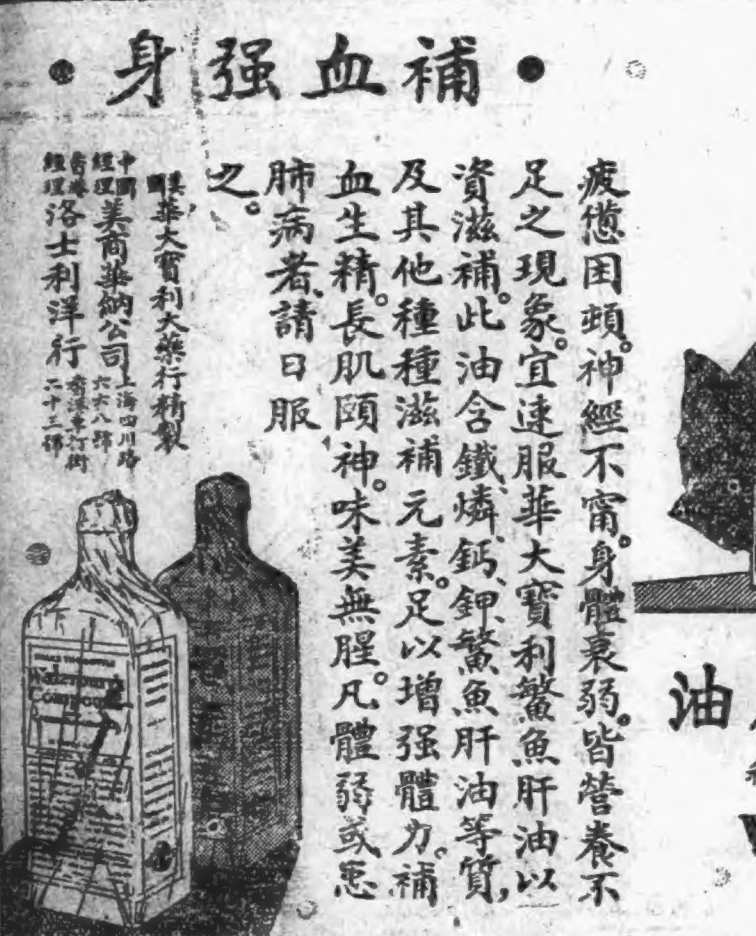 補血强身
疲憊困頓。神經不甯。身體衰弱。皆營養不
足之現象。宜速服華大寶利鰵魚肝油以
資滋補。此油含鐵、燐、鈣、鉀、鰵魚肝油等質,
及其他種種滋補元素。足以增强體力。補
血生精。長肌頤神。味美無腥。凡體弱或患
肺病者、請日服
之。
英國華大寶利大藥行精製
中國經理 美商華納公司 上海四川路六六八號
香港經理 洛士利洋行 香港車打街二十三號
Waterbury's
Compound
油